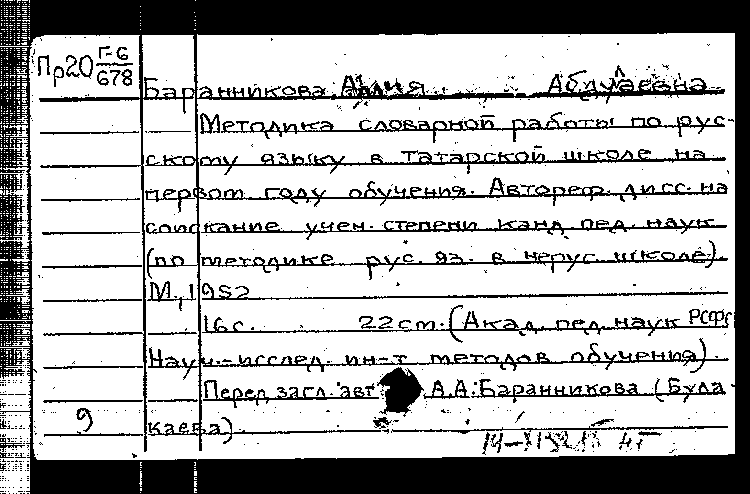 Пр20 Г-6/678
Баранникова Алия Абдулаевна
Методика словарной работы по рус-
скому языку в татарской школе на
первом году обучения. Автореф. дисс. на
соискание учен. степени канд. пед. наук
(по методике рус. яз. в нерус. школе).
М., 1952
16 с. 22 cm. (Акад. пед. наук РСФСР
Науч.-исслед. ин-т методов обучения).
Перед загл. авт А.А. Баранникова (Була-
9 каева).